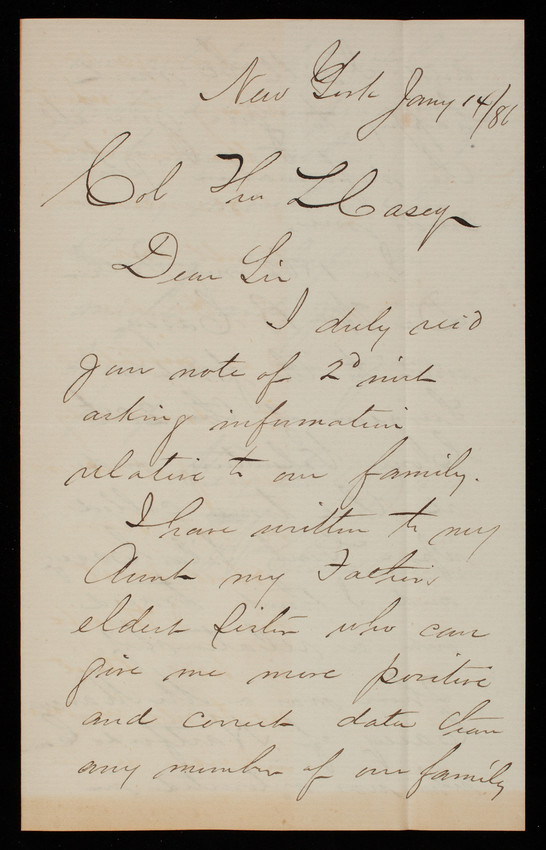 New York Jany 14/86
Col Thos L Casey
Dear Sir
I duly rec'd
your note of 2d inst
asking information
relative to our family.
I have written to my
Aunt my Father's
eldest Sister who can
give me more positive
and correct data than
any member of our family